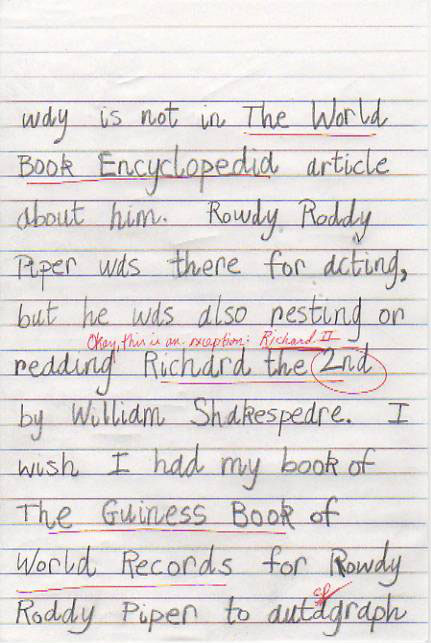 wdy is not in The World
Book Encyclopedia article
about him. Rowdy Roddy
Piper was there for acting,
but he was also resting or
Okay, this is an exception: Richard II
reading Richard the 2nd
by William Shakespeare. I
wish I had my book of
The Guiness Book of
World Records for Rowdy
Roddy Piper to autagraph
sp